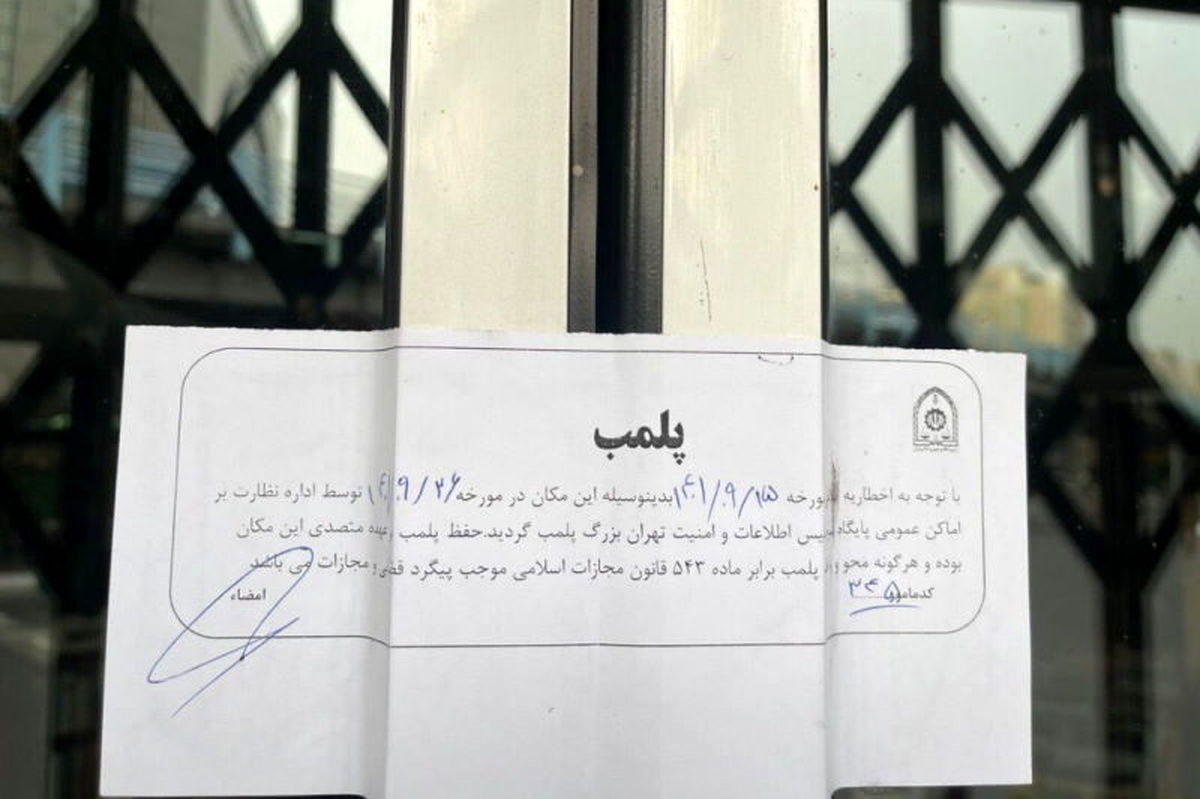 پلمب
با توجه به اخطاریه مورخه ۱۴۰۱/۰۹/۲۵ بدینوسیله این مکان در مورخه ۱۴۰۱/۰۹/۲۶ توسط اداره نظارت بر
اماکن عمومی پایگاه پلیس اطلاعات و امنیت تهران بزرگ پلمب گردید.حفظ پلمب بعهده متصدی این مکان
بوده و هرگونه محو و پلمب برابر ماده ۵۴۳ قانون مجازات اسلامی موجب پیگرد قضی و مجازات می باشد
کدمامور ۳۴۵ امضاء